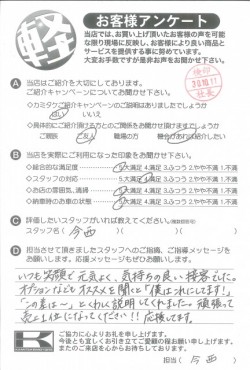 軽
お客様アンケート
当店では、お買い上げ頂いたお客様の声を可能
な限り現場に反映し、お客様により良い商品と
サービスを提供する事に努めています。
大変お手数ですが是非お声をお聞かせ下さい。
A 当店はご紹介を大切にしております。
ご紹介キャンペーンについてお聞かせ下さい。
◇カミタケご紹介キャンペーンのご説明はありましたでしょうか
はい いいえ
ご親戚 ご友人 職場の方 機会があれば紹介したい
B 当店を実際にご利用になった印象をお聞かせ下さい。
◇総合的な満足度 5.大満足 4.満足 3.ふつう 2.やや不満 1.不満
◇スタッフの対応 5.大満足 4.満足 3.ふつう 2.やや不満 1.不満
◇お店の雰囲気、清掃 5.大満足 4.満足 3.ふつう 2.やや不満 1.不満
◇納車時のお車の状態 5.大満足 4.満足 3.ふつう 2.やや不満 1.不満
C 評価したいスタッフがいれば教えてください。
スタッフ名( 今西 )
D 担当させて頂きましたスタッフへのご指摘、ご指導メッセージを
お願いします。応援メッセージもぜひお願いします。
いつも笑顔で元気よく、気持ちの良い接客でした。
オプションなどもオススメを聞くと「僕はコレにしてます!」
「この差は〜」とくわしく説明してくれました。頑張って
売上1位になってください!!応援してます。
K
ご協力に心よりお礼を申し上げます。
今後とも宜しくお引き立てご愛顧の程お願い申し上げます。
またのご来店を心からお待ちしております。
担当( 今西 )